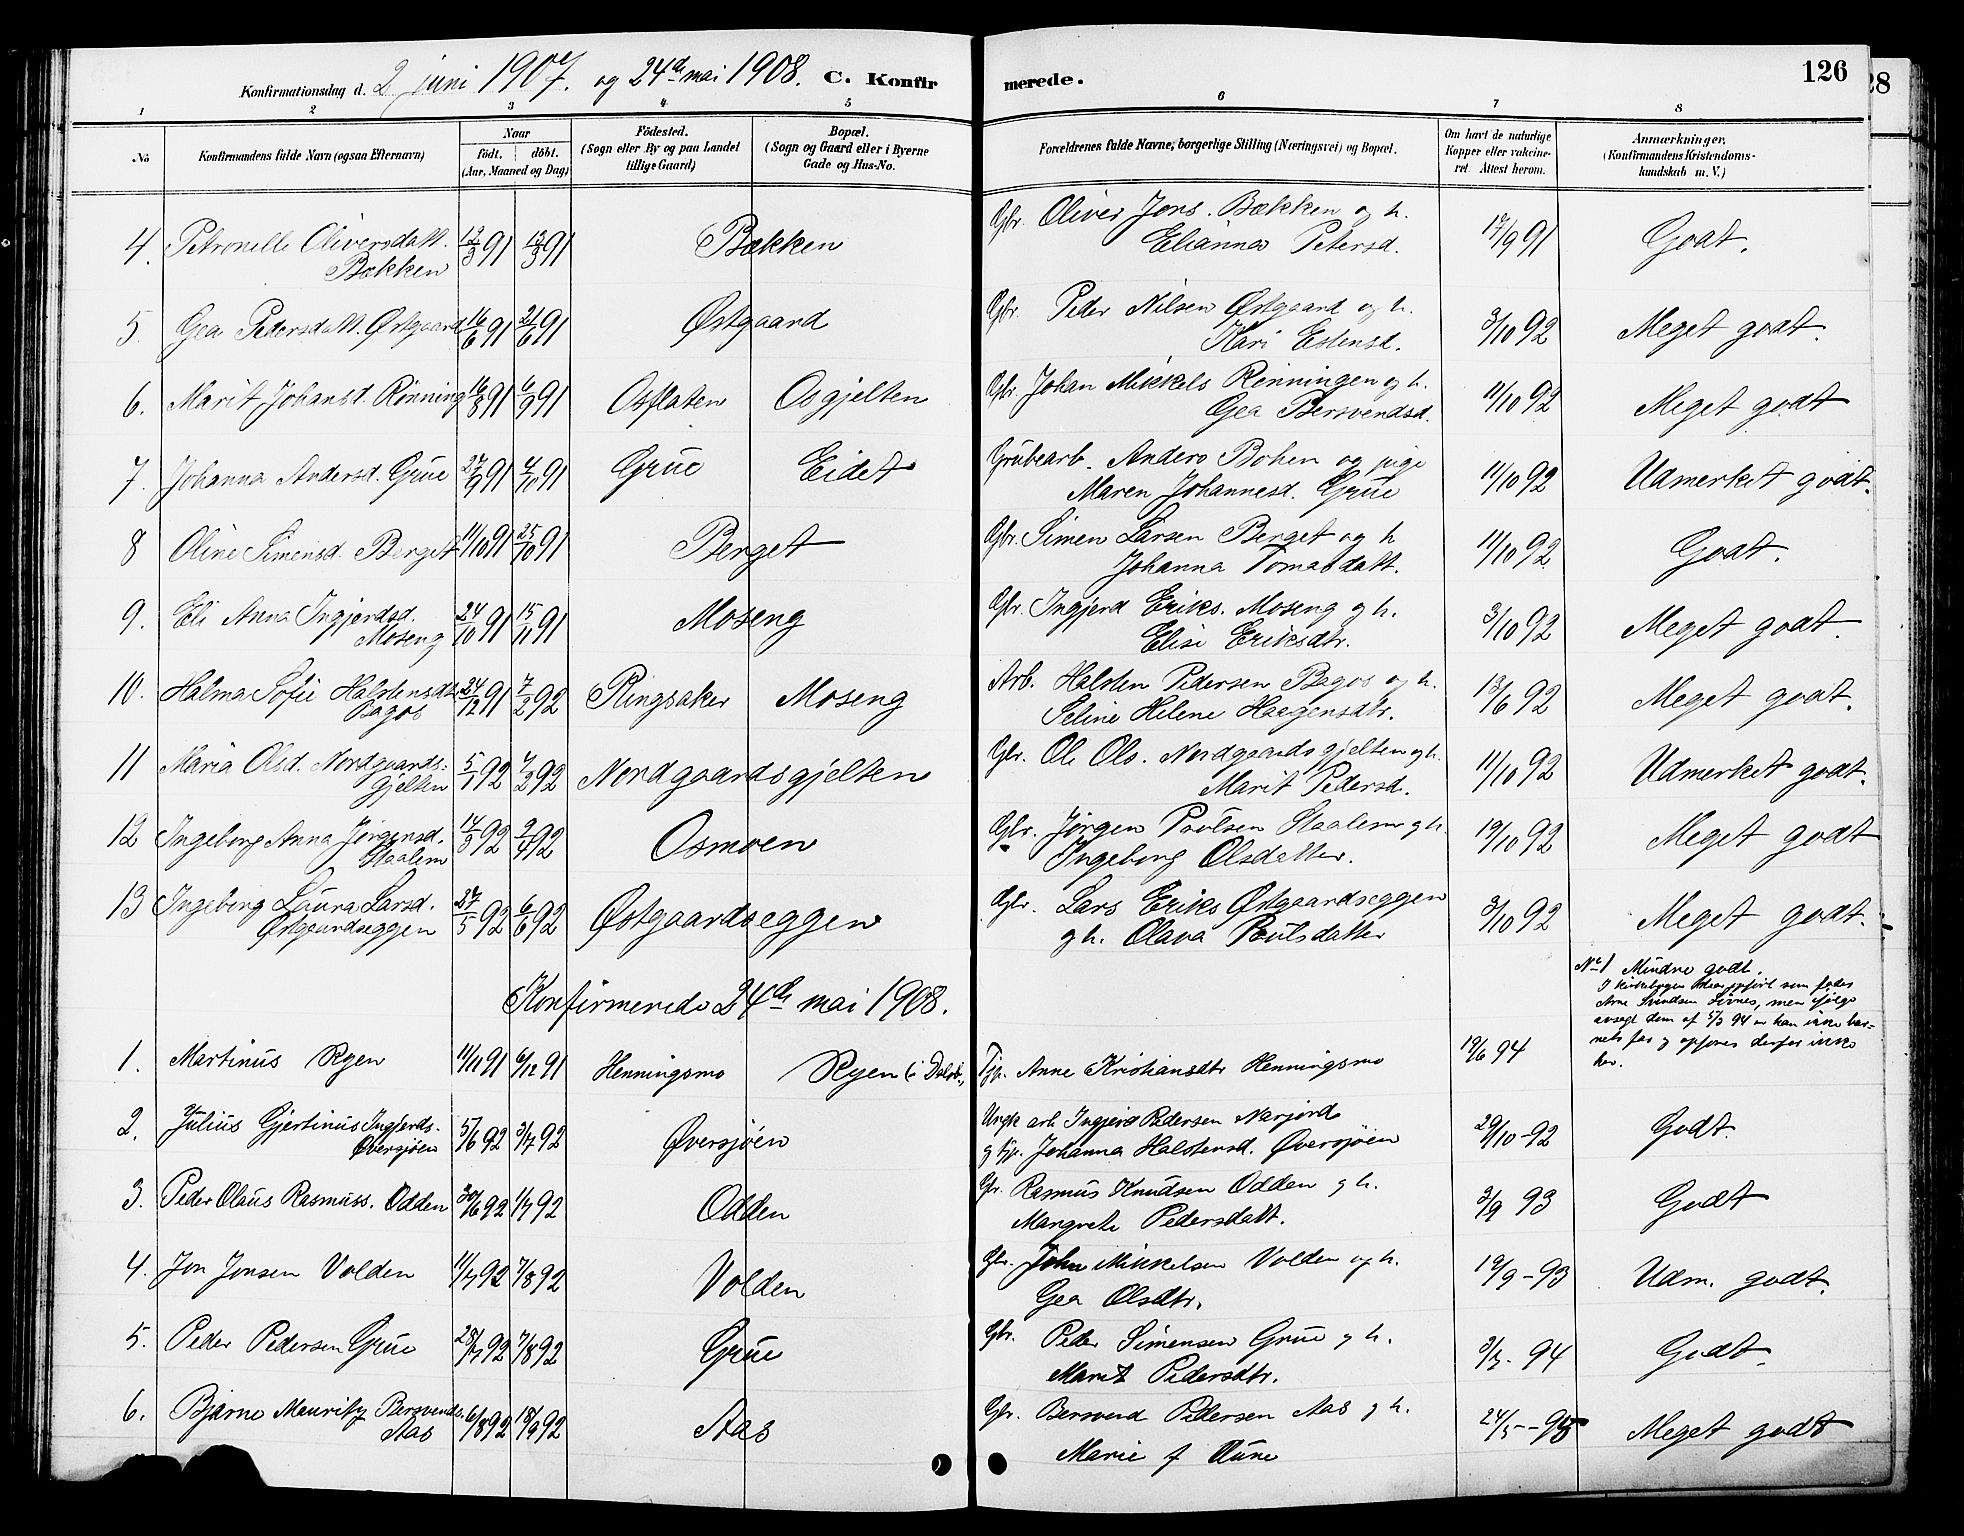 Konfirmationsdag d. 2 juni 1907. og 24de mai 1908. C. Konfirmerede. 126
28
1 2 3 4 5 6 7 8
No Konfirmandens fulde Navn (ogsaa Efternavn) Naar født. døbt. (Aar, Maaned og Dag) Födested. (Sogn eller By og paa Landet tillige Gaard) Bopæl. (Sogn og Gaard eller i Byerne Gade og Hus-No. Forældrenes fulde Navne, borgerlige Stilling (Næringsvei) og Bopæl. Om havt de naturlige Kopper eller vakcineret. Attest herom. Anmærkninger, (Konfirmandens Kristendomskundskab m. V.)
4. Petronelle Oliversdatt. 13/3 91 13/3 91 Bækken Gbr. Oliver Jons. Bækken og h. 17/9 91 Godt.
Bækken Elianna Petersd.
5. Gea Pedersdatt. Østgaard 16/6 91 21/6 91 Østgaard Gbr. Peder Nilsen Østgaard og h. 3/10 92 Meget godt.
Kari Estensd.
6. Marit Johansd. Rønning 16/8 91 6/9 91 Osflaten Osgjelten Gbr. Johan Mikkels Rønningen og h. 11/10 92 Meget godt
Gea Bersvendsd.
7. Johanna Andersd. Grue 27/9 91 4/10 91 Grue Eidet Grubearb. Anders Bohen og pige 11/10 92 Udmerket godt.
Maren Johannesd. Grue
8 Oline Simensd. Berget 11/10 91 25/10 91 Berget Gbr. Simen Larsen Berget og h 11/10 92 Godt.
Johanna Tomasdatt.
9. Eli Anna Ingjerdsd. 24/10 91 15/11 91 Moseng Gbr. Ingjerd Eriks. Moseng og h. 3/10 92 Meget godt.
Moseng Elise Eriksdtr.
10. Halma Sofie Halstensdtr 24/12 91 7/2 92 Ringsaker Moseng Arb. Halsten Pedersen Bagos og h. 13/6 92 Meget godt.
Bagos Seline Helene Haagensdtr.
11 Maria Olsd. Nordgaards- 5/1 92 7/2 92 Nordgaardsgjelten Gbr. Ole Ols. Nordgaardsgjelten og h. 11/10 92 Udmerket godt.
gjelten Marit Pedersd.
12 Ingeborg Anna Jørgensd. 14/3 92 2/4 92 Osmoen Gbr. Jørgen Poulsen Staalem og h. 19/10 92 Meget godt
Staalem Ingeborg Olsdatter.
13 Ingeborg Laura Larsd. 27/5 92 6/6 92 Østgaardseggen Gbr. Lars Eriks Østgaardseggen 3/10 92 Meget godt.
Østgaardseggen og h. Olava Poulsdatter
Konfirmerede 24de mai 1908.
No 1 Mindre godt.
I kirkebogen blev opført som fader
Arne Svendsen Livnes, men ifølge
avsagt dom af 5/3 94 er han ikke bar-
nets far og opføres derfor ikke
her.
1. Martinus Ryen 11/11 91 6/12 91 Henningsmo Ryen (i Dalsb.) Tjp. Anne Kristiansdtr Henningsmo 19/6 94
2. Julius Gjertinus Ingjerds- 5/6 92 3/7 92 Øversjøen Ungk arb Ingjerd Pedersen Narjord 29/10-92 Godt.
Øversjøen og tjp. Johanna Halstensd. Øversjøen
3. Peder Olaus Rasmuss. Odden 30/6 92 1/7 92 Odden Gbr. Rasmus Knudsen Odden og h. 3/9 93 Godt
Margrete Pedersdatt.
4. Jon Jonsen Volden 11/7 92 7/8 92 Volden Gbr. John Mikkelsen Volden og h. 19/9-93 Udm. godt.
Gea Olsdtr.
5. Peder Pedersen Grue 28/7 92 7/8 92 Grue Gbr. Peder Simensen Grue og h. 3/7-94 Godt.
Marit Pedersdtr.
6. Bjarne Mauritz Bersvends. 6/8 92 18/9 92 Aas Gbr. Bersvend Pedersen Aas og h. 24/5-95 Meget godt
Aas Marie f Aune